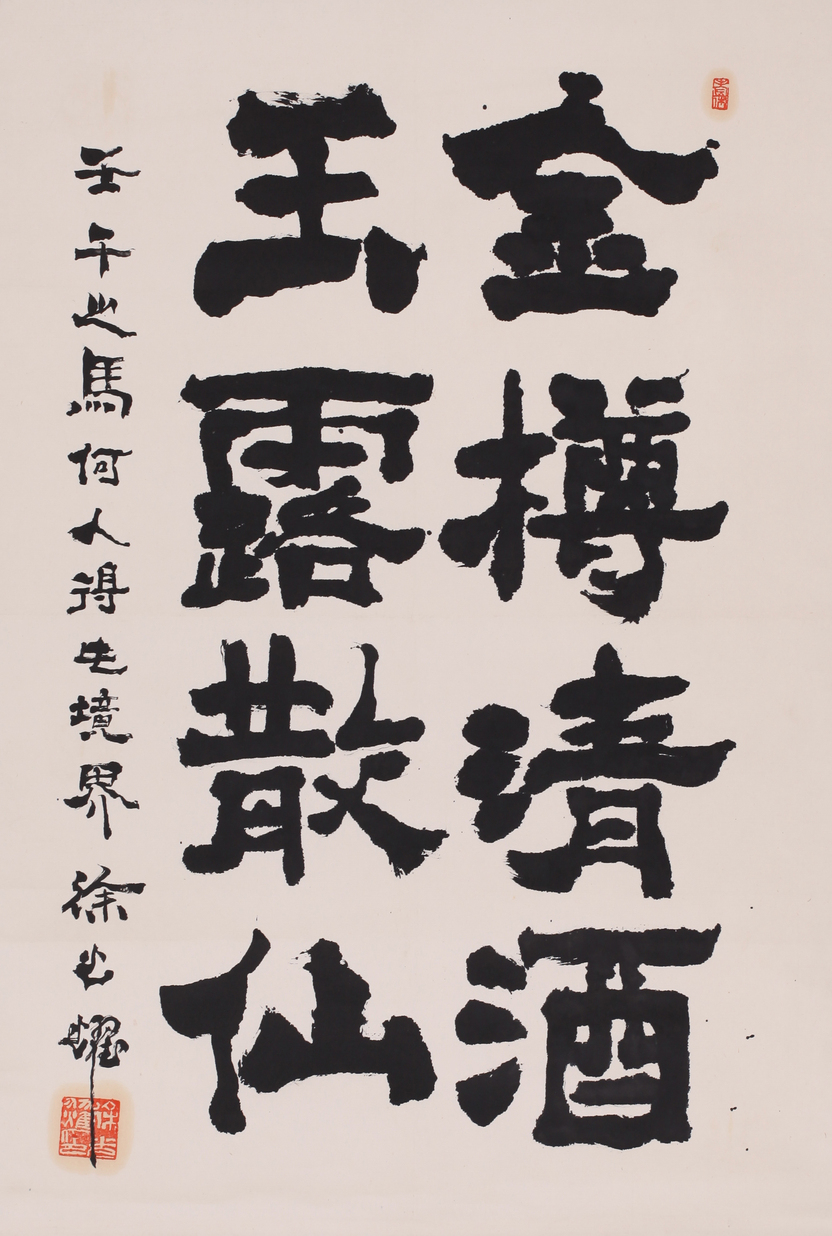 金樽清酒
玉露散仙
壬午之馬何人得境界 徐耀